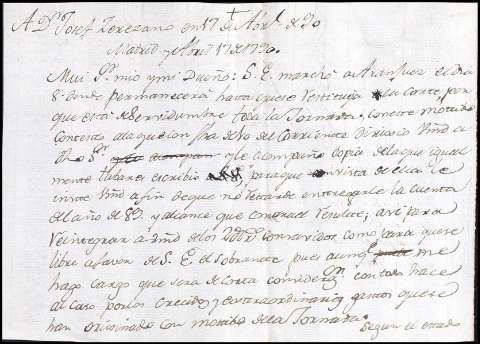 A Dn. Josef Terezano en 17 de Abrl. de 90
Madrid y Abril 17 de 1790.
Mui Sr. mio y mi Dueño: S. E. marchó a Aranjuez el dia
8. donde permanecerá hasta que se restituya la Corte, por
que está de Servidumbre toda la Jornada. Con este motivo
contesto a la que con fha de 10 del Corriente dirigió Vmd a
dho Sr. y le acompaño copia de la que igual
mente
escribio para que vista de ella le
Vmd a fin de que no retarde entregarle la Cuenta
del año de 89, y alcance que contra el resulte; asi para
reintegrar a Vmd de los como para que se
libre a favor de S. E. el sobrante pues aunqe. me
hago cargo que sera de corta consideron. con todo hace
al caso por los crecidos y extraordinarios gastos que se
han originado con motibo de la Jornada.
Segun el estado